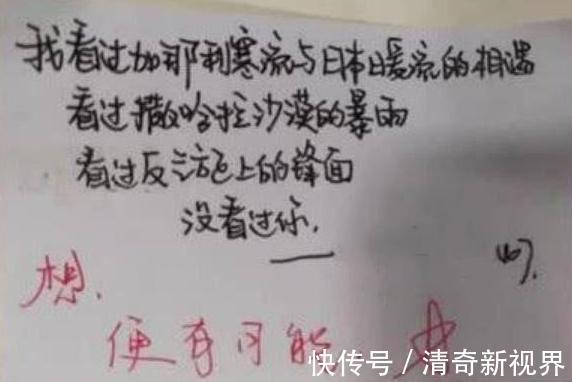 我看过加那利寒流与日本暖流的相遇
看过撒哈拉沙漠的暴雨
看过反气旋上的锋面
没看过你.
想.
便有可能
快传号/清奇新视界